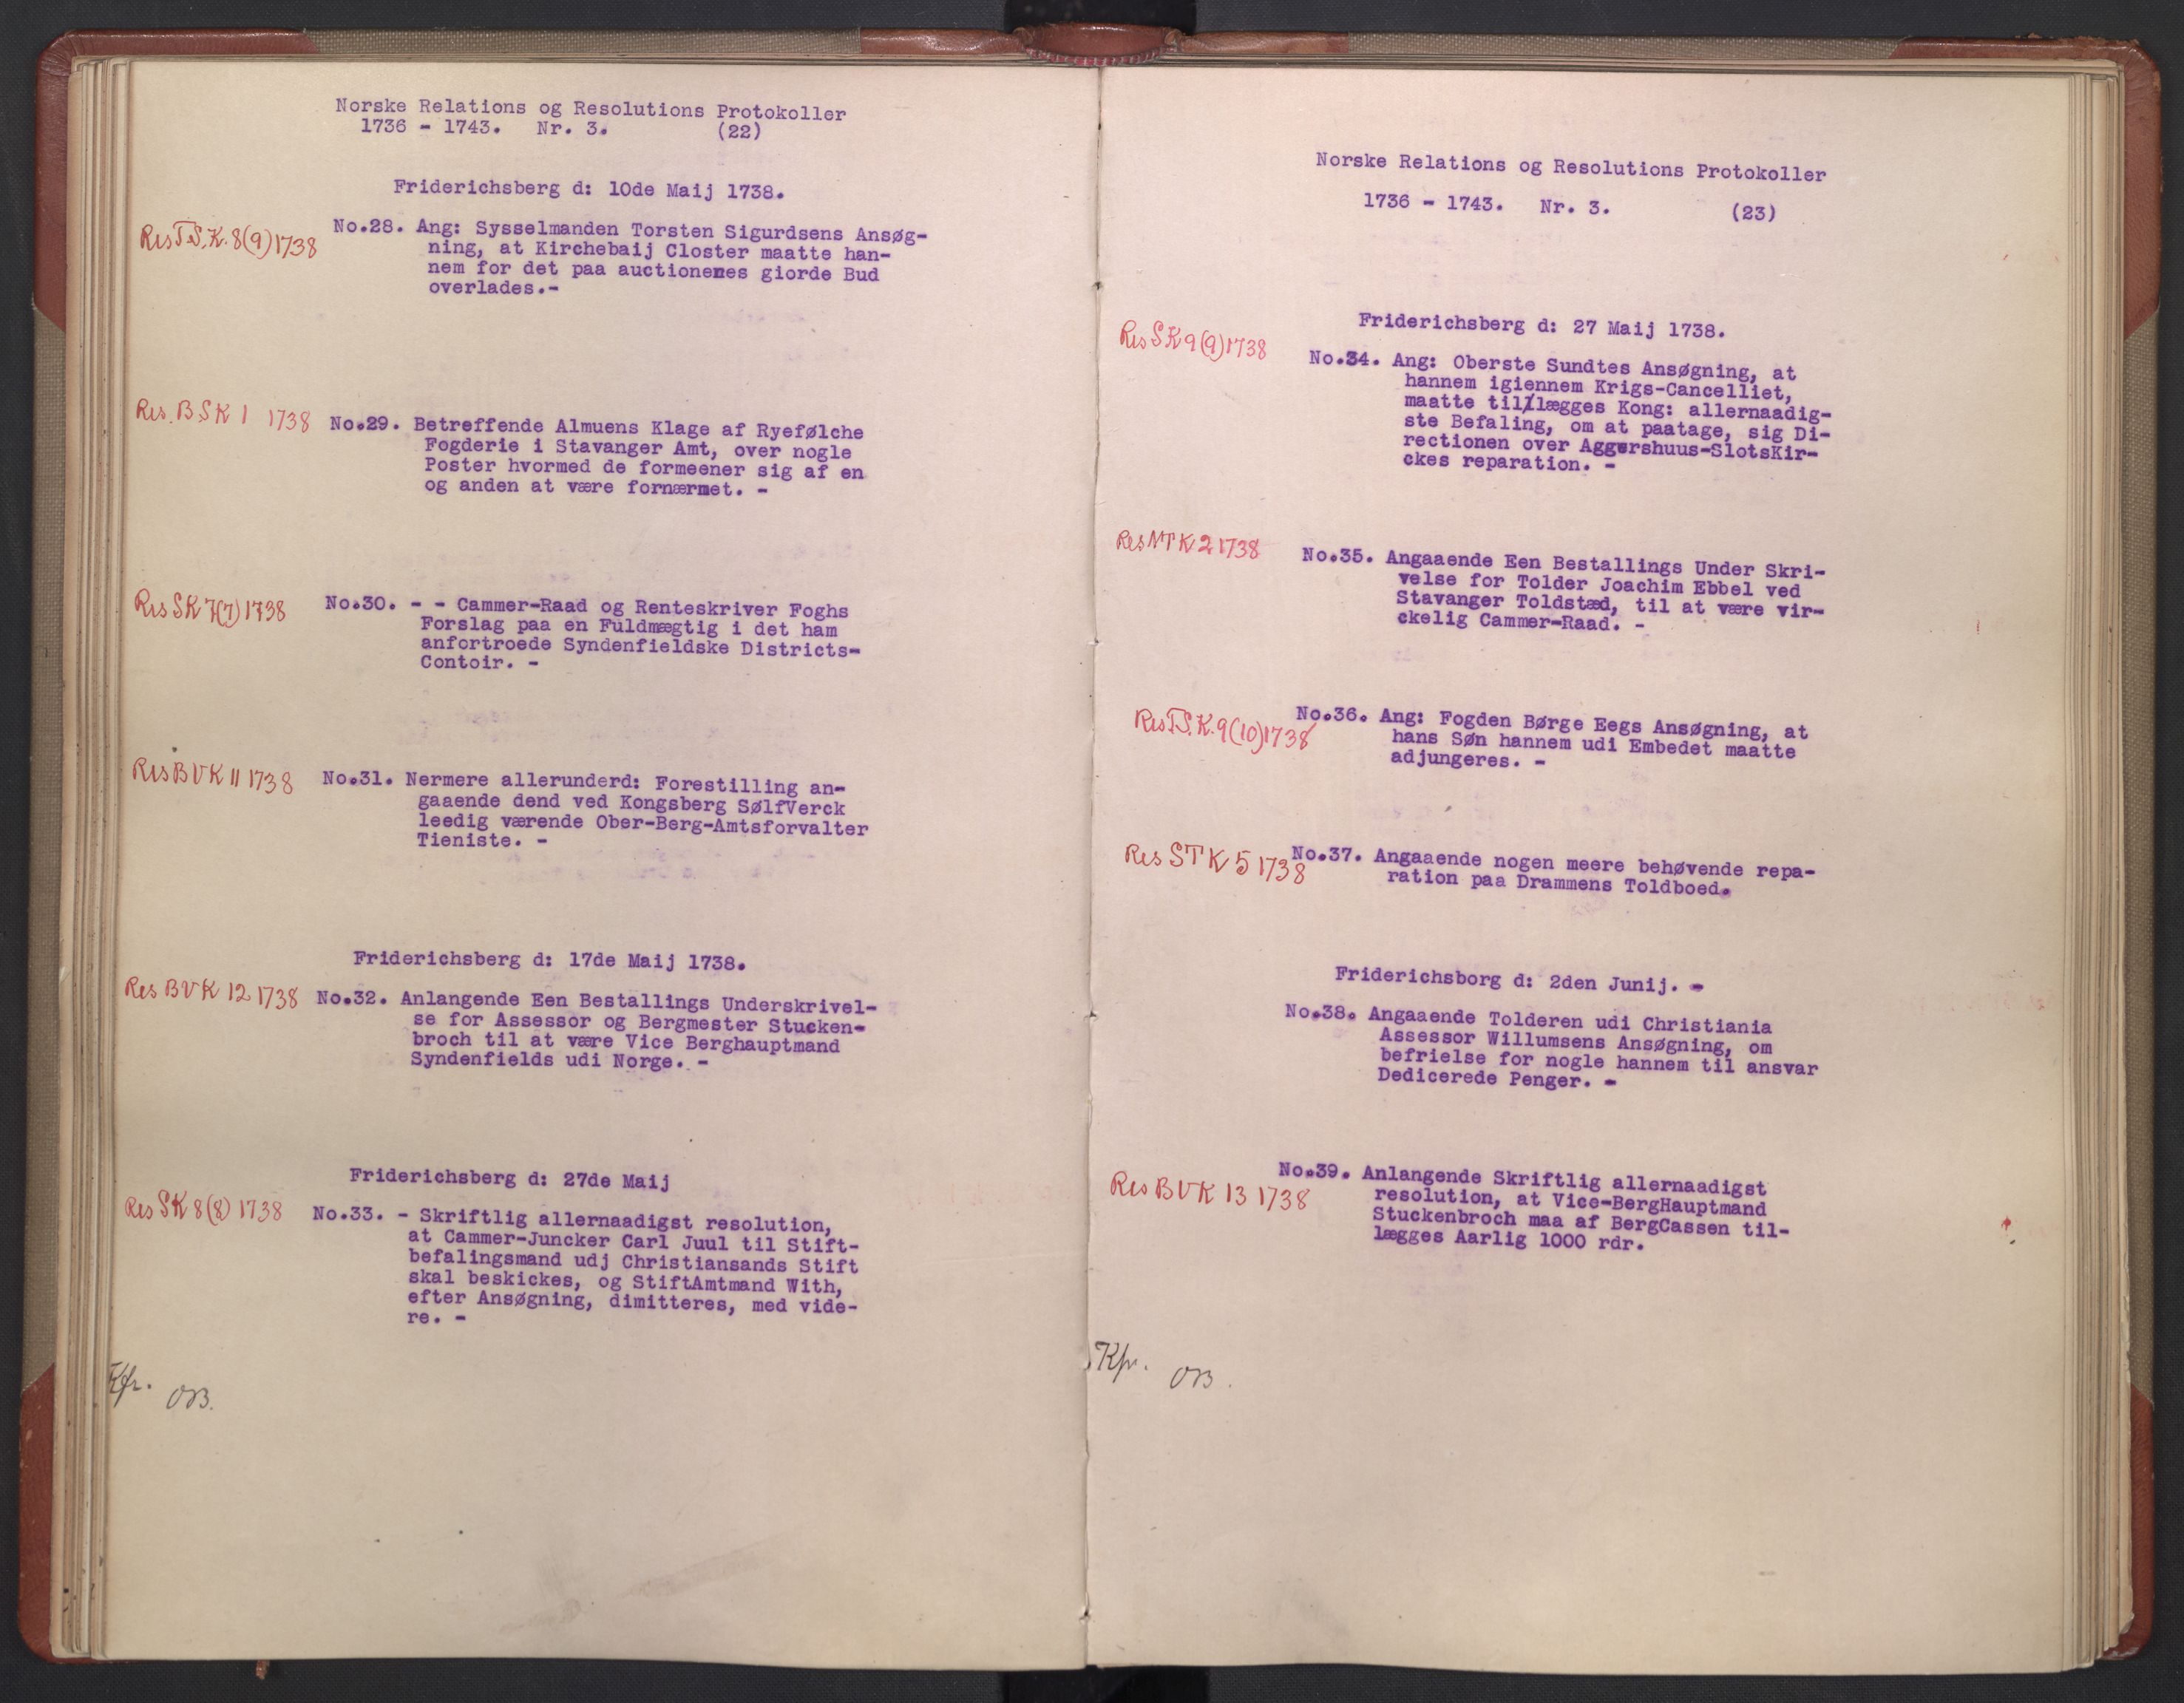 Norske Relations og Resolutions Protokoller
1736 - 1743. Nr. 3. (22)
Friderichsberg d: 10de Maij 1738.
Res T.S.K. 8(9) 1738
No.28. Ang: Sysselmanden Torsten Sigurdsens Ansøg-
ning, at Kirchebaij Closter maatte han-
nem for det paa auctionenes giorde Bud
overlades.-
Res. B.SK 1 1738
No.29. Betreffende Almuens Klage af Ryefølche
Fogderie i Stavanger Amt, over nogle
Poster hvormed de formeener sig af en
og anden at være fornærmet. -
Res SK 7(7) 1738
No.30. - - Cammer-Raad og Renteskriver Foghs
Forslag paa en Fuldmægtig i det ham
anfortroede Syndenfieldske Districts-
Contoir. -
Res B V K 11 1738
No.31. Nermere allerunderd: Forestilling an-
gaaende dend ved Kongsberg SølfVerck
leedig værende Ober-Berg-Amtsforvalter
Tieniste. -
Friderichsberg d: 17de Maij 1738.
Res BV K 12 1738
No.32. Anlangende Een Bestallings Underskrivel-
se for Assessor og Bergmester Stucken-
broch til at være Vice Berghauptmand
Syndenfields udi Norge. -
Friderichsberg d: 27de Maij
Res SK 8(8) 1738
No.33. - Skriftlig allernaadigst resolution,
at Cammer-Juncker Carl Juul til Stift-
befalingsmand udj Christiansands Stift
skal beskickes, og StiftAmtmand With,
efter Ansøgning, dimitteres, med vide-
re. -
Kfr. OB.
Norske Relations og Resolutions Protokoller
1736 - 1743. Nr. 3. (23)
Friderichsberg d: 27 Maij 1738.
Res SK 9(9) 1738
No.34. Ang: Oberste Sundtes Ansøgning, at
hannem igiennem Krigs-Cancelliet,
maatte tillægges Kong: allernaadig-
ste Befaling, om at paatage, sig Di-
rectionen over Aggershuus-SlotsKir-
ckes reparation. -
Res NT K 2 1738
No.35. Angaaende Een Bestallings Under Skri-
velse for Tolder Joachim Ebbel ved
Stavanger Toldstæd, til at være vir-
ckelig Cammer-Raad. -
Res T.S.K. 9(10) 1738
No.36. Ang: Fogden Børge Eegs Ansøgning, at
hans Søn hannem udi Embedet maatte
adjungeres. -
Res ST K 5 1738
No.37. Angaaende nogen meere behøvende repa-
ration paa Drammens Toldboed.
Friderichsborg d: 2den Junij. -
No.38. Angaaende Tolderen udi Christiania
Assessor Willumsens Ansøgning, om
befrielse for nogle hannem til ansvar
Dedicerede Penger. -
Res B V K 13 1738
No.39. Anlangende Skriftlig allernaadigst
resolution, at Vice-BergHauptmand
Stuckenbroch maa af BergCassen til-
lægges Aarlig 1000 rdr.
Kfr. OB.